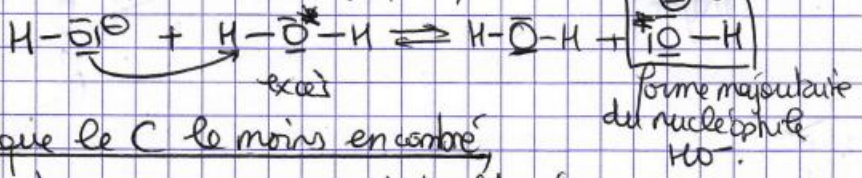 H-O⊖ + H-O*-H ⇌ H-O-H + *O-H
excès
forme majoritaire
du nucléophile
HO⁻.
que le C le moins encombré